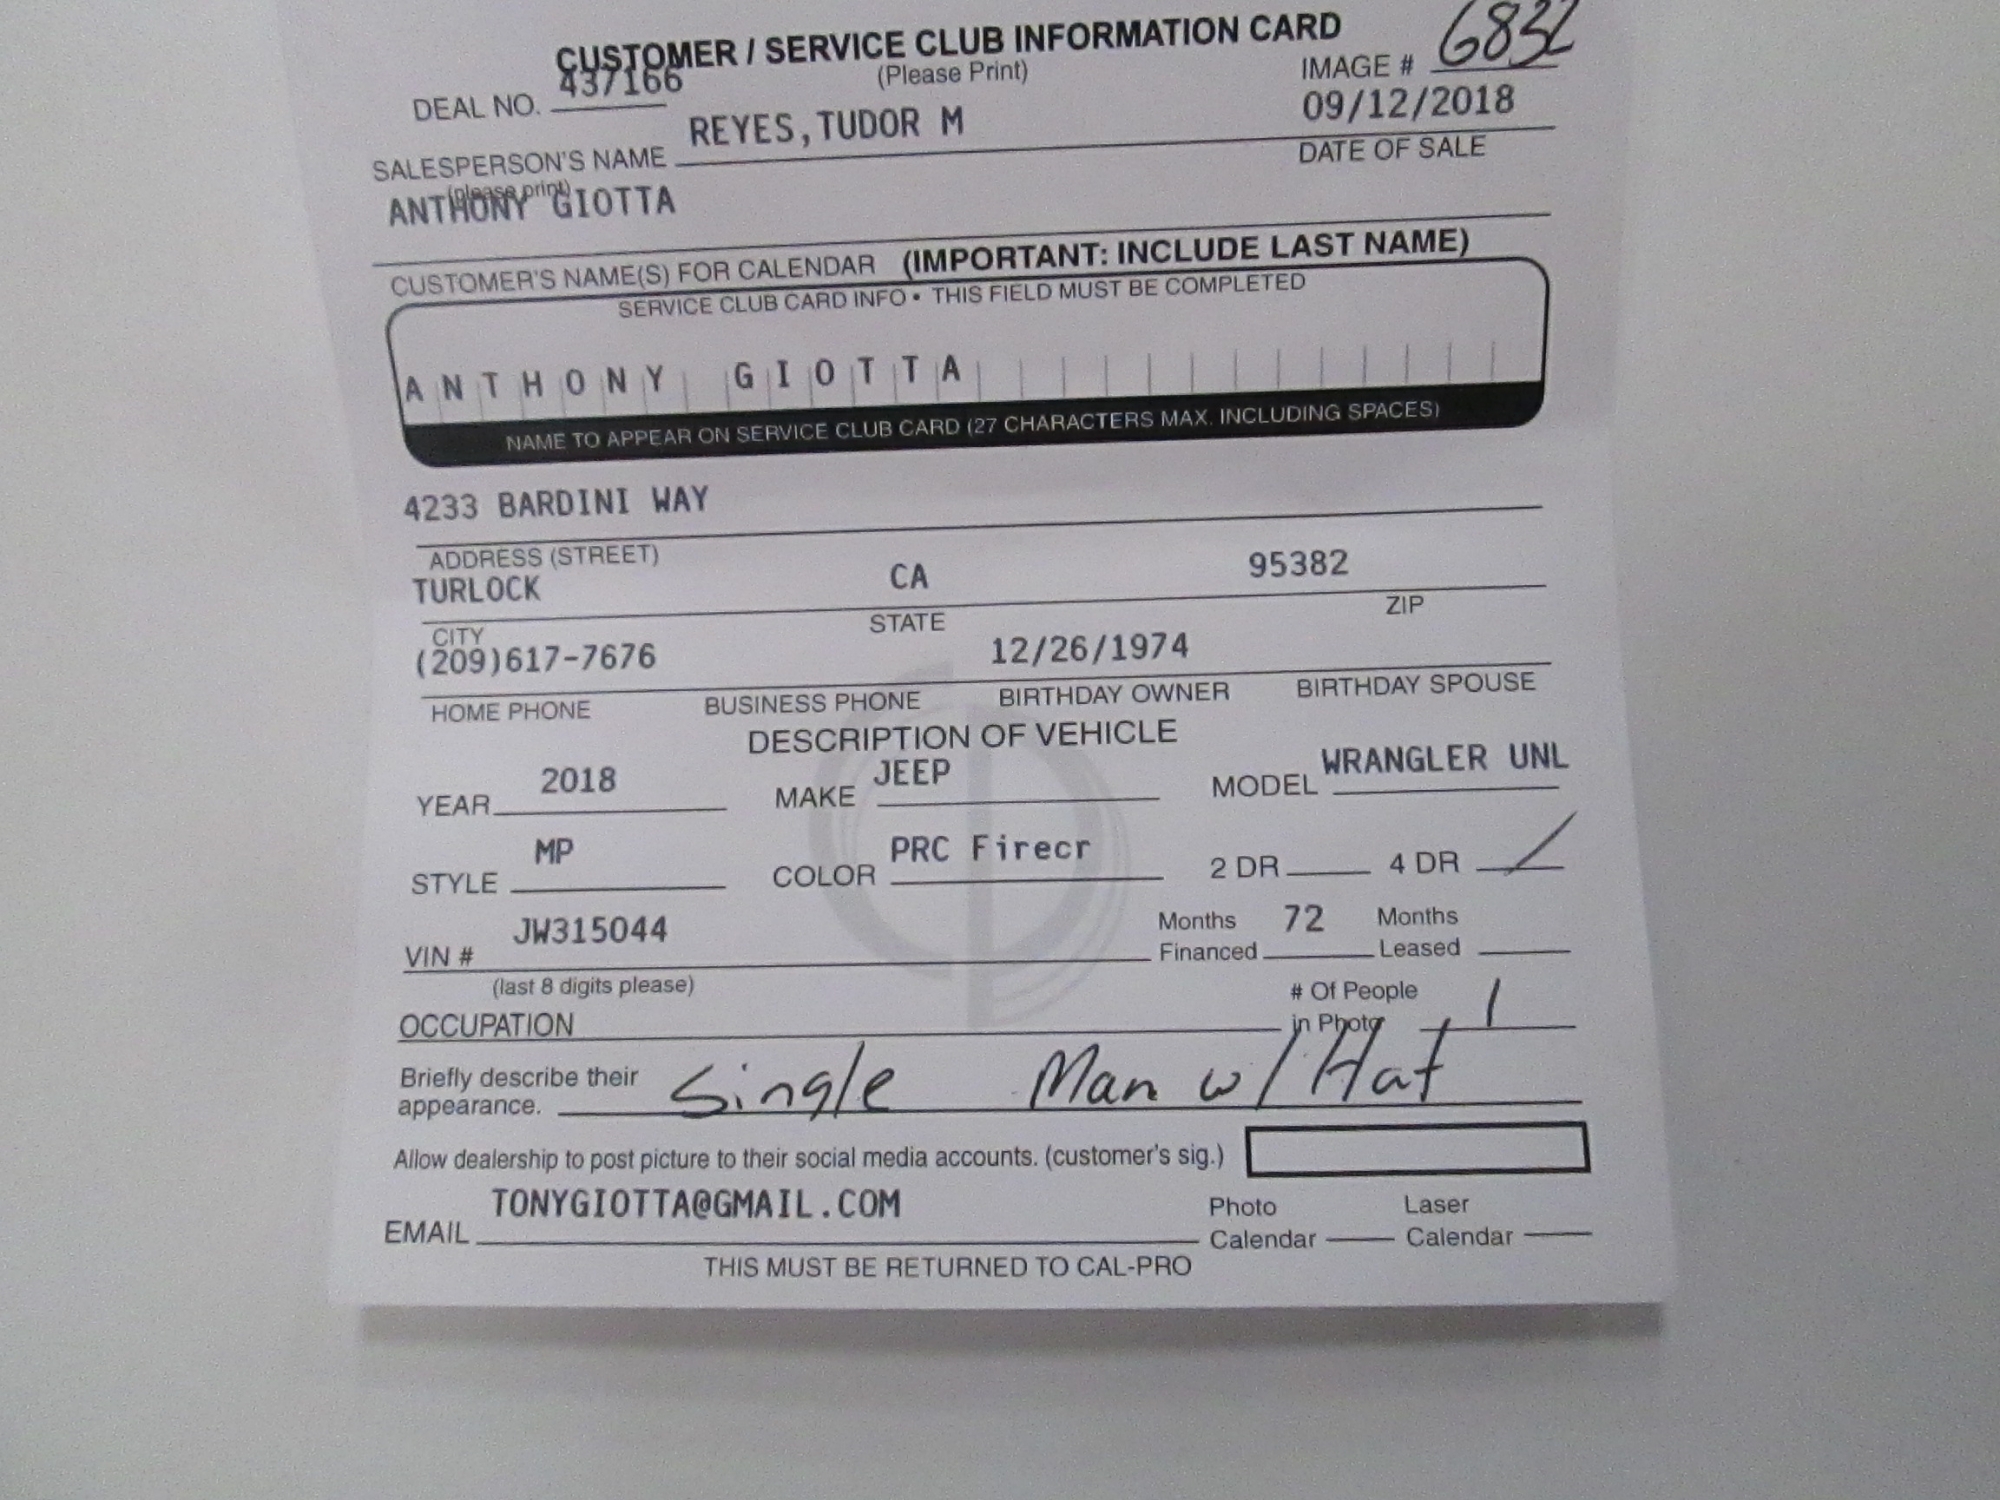 CUSTOMER / SERVICE CLUB INFORMATION CARD
(Please Print)
IMAGE # 6832
DEAL NO. 437166
09/12/2018
SALESPERSON'S NAME REYES,TUDOR M
DATE OF SALE
(please print)
ANTHONY GIOTTA
CUSTOMER'S NAME(S) FOR CALENDAR (IMPORTANT: INCLUDE LAST NAME)
SERVICE CLUB CARD INFO • THIS FIELD MUST BE COMPLETED
ANTHONY GIOTTA
NAME TO APPEAR ON SERVICE CLUB CARD (27 CHARACTERS MAX. INCLUDING SPACES)
4233 BARDINI WAY
ADDRESS (STREET)
TURLOCK CA 95382
CITY STATE ZIP
(209)617-7676 12/26/1974
HOME PHONE BUSINESS PHONE BIRTHDAY OWNER BIRTHDAY SPOUSE
DESCRIPTION OF VEHICLE
YEAR 2018 MAKE JEEP MODEL WRANGLER UNL
STYLE MP COLOR PRC Firecr 2 DR 4 DR
VIN # JW315044 Months Financed 72 Months Leased
(last 8 digits please)
OCCUPATION # Of People in Photo 1
Briefly describe their appearance. Single Man w/ Hat
Allow dealership to post picture to their social media accounts. (customer's sig.)
EMAIL TONYGIOTTA@GMAIL.COM Photo Calendar Laser Calendar
THIS MUST BE RETURNED TO CAL-PRO